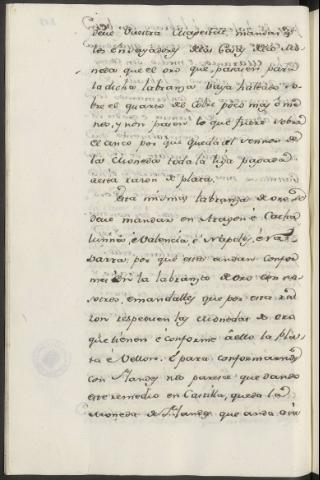 deve Vuestra Magestad, mandar á
los ensayadores de las Casas de la Mo-
neda que el oro que pasaren para
la dicha labranza vaya
bre el quarto de cobre poco mas ó me-
nos, y non pasen lo que fuere sobre
el anco por que queda el
la Moneda toda la liga pagada
a esta razon de plata.
Esta misma labranza de oro se
deve mandar en Aragon é Catha
lunna, é Valencia, é Napoles, é Na
barra, por que estos andan confor
mes en la labranza de oro con no-
sotros, e mandalles que por esta ra
zon respeten las Monedas de oro
que tienen é conforme á ello la pla
ta e Vellon. E para conformarnos
con Flandes me parece, que dando
este remedio en Castilla, queda la
Moneda de Flandes que anda ora